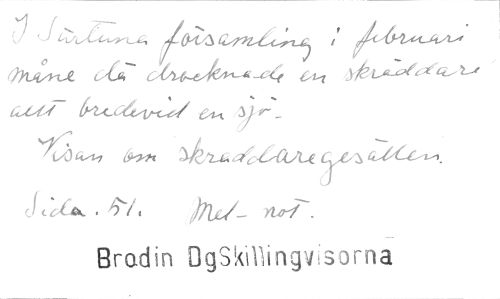 I Surtuna församling i februari
måne då drocknade en skräddare
allt bredevid en sjö-
Visan om skraddaregesällen.
Sida. 51. Mel- not.
Brodin DgSkillingvisorna